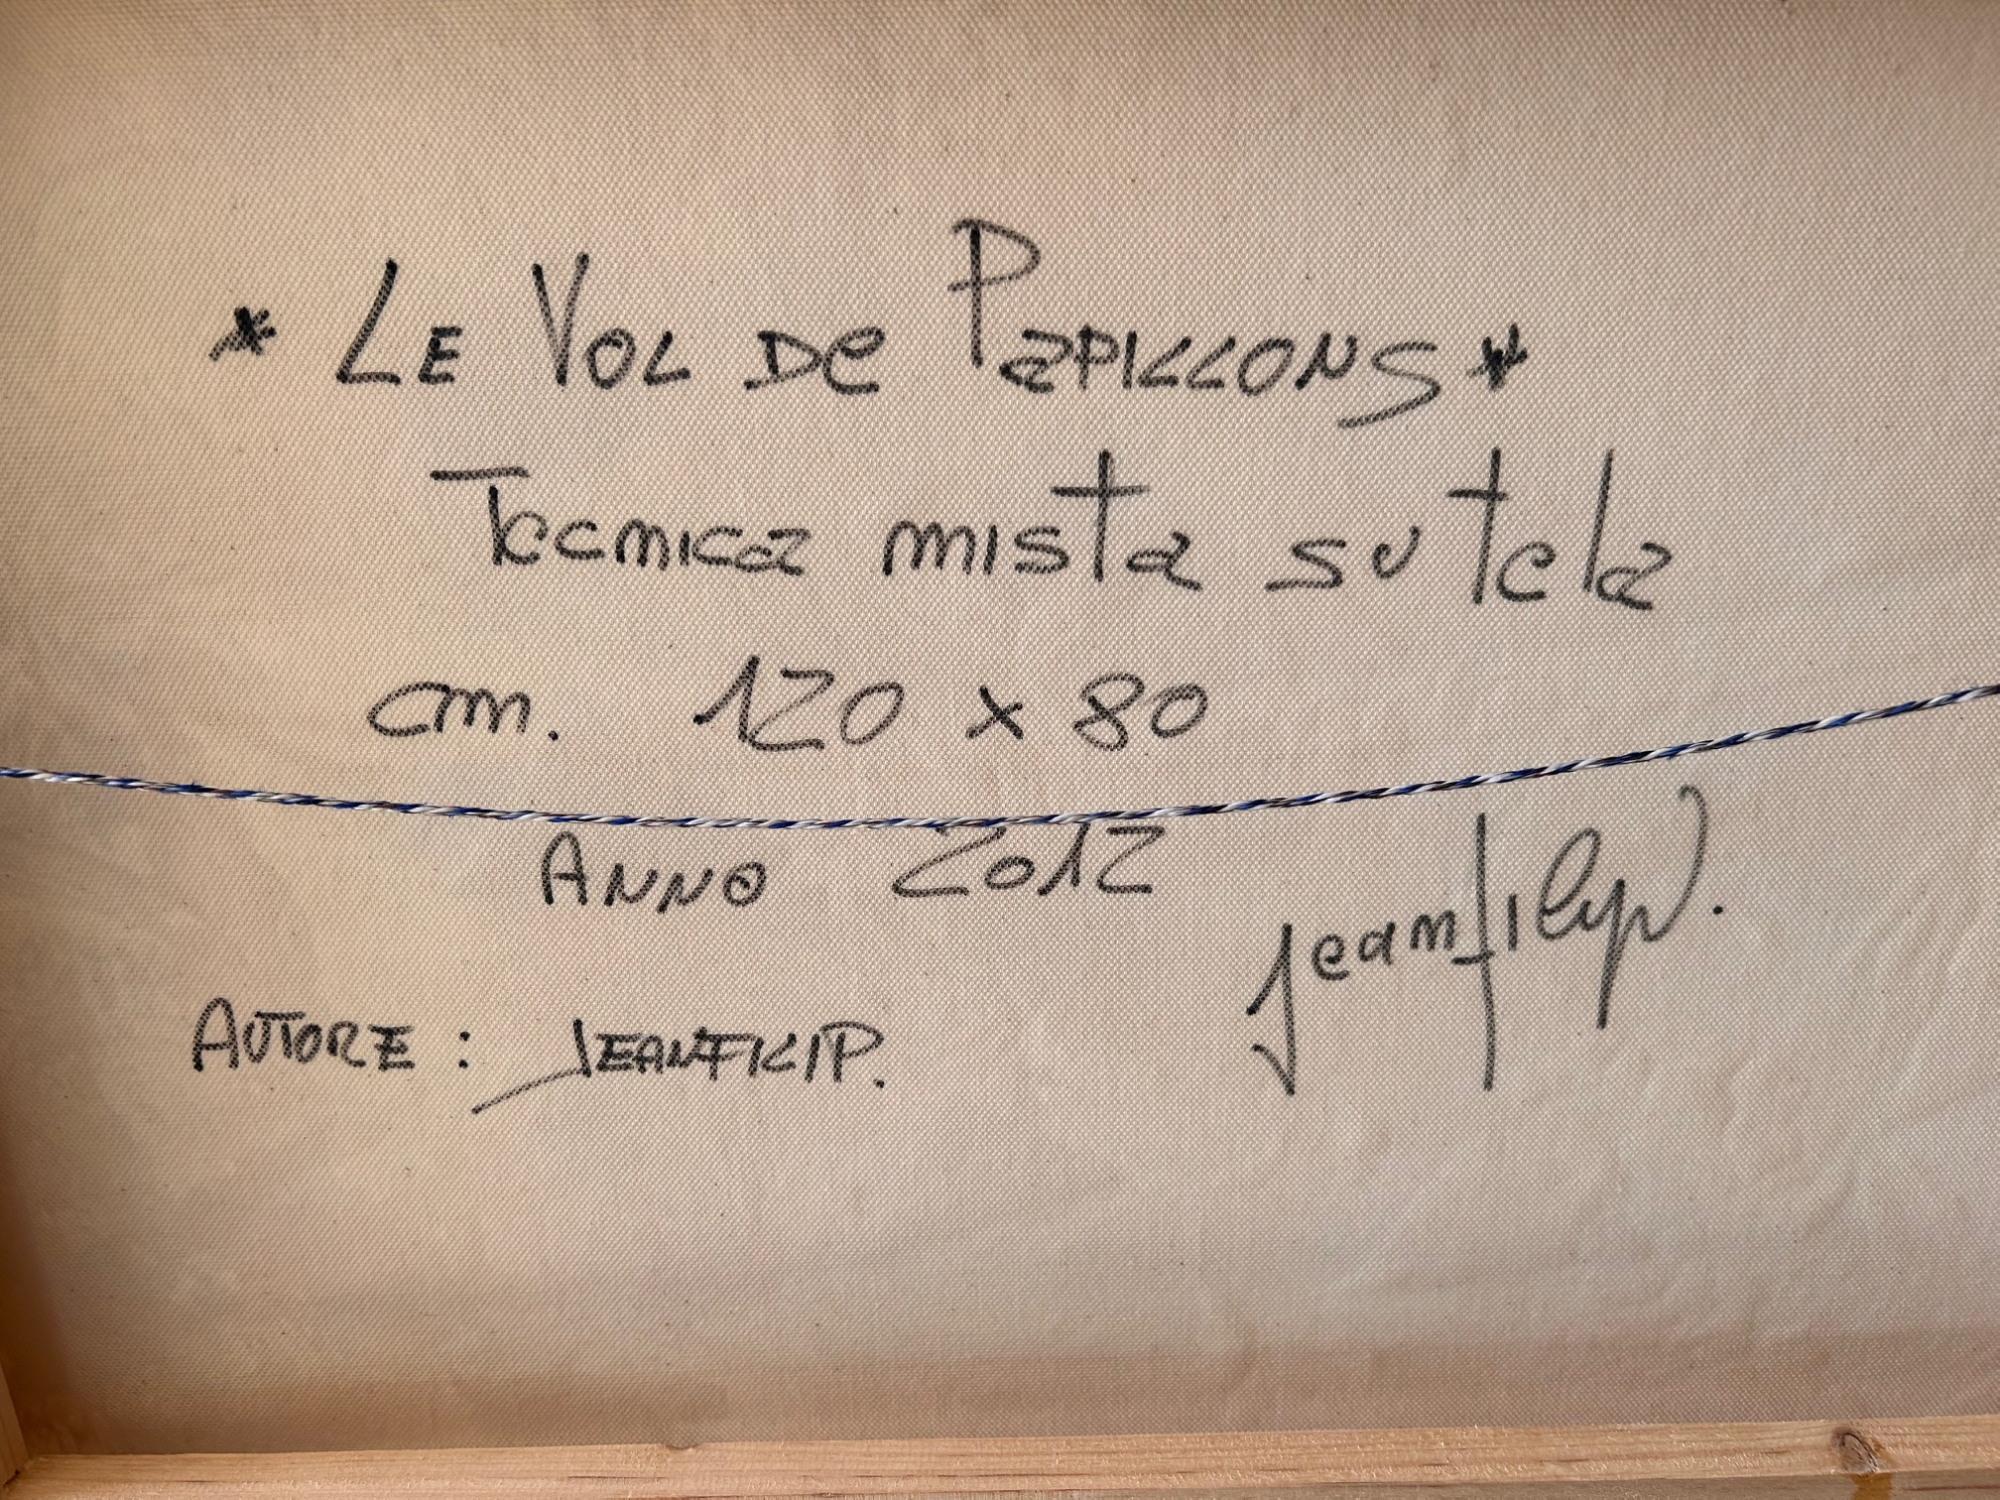 * LE VOL De PaPILLONS *
Tecnica mista su tela
cm. 120 x 80
ANNO 2012
Jeanfilip.
AUTORE : JEANFILIP.